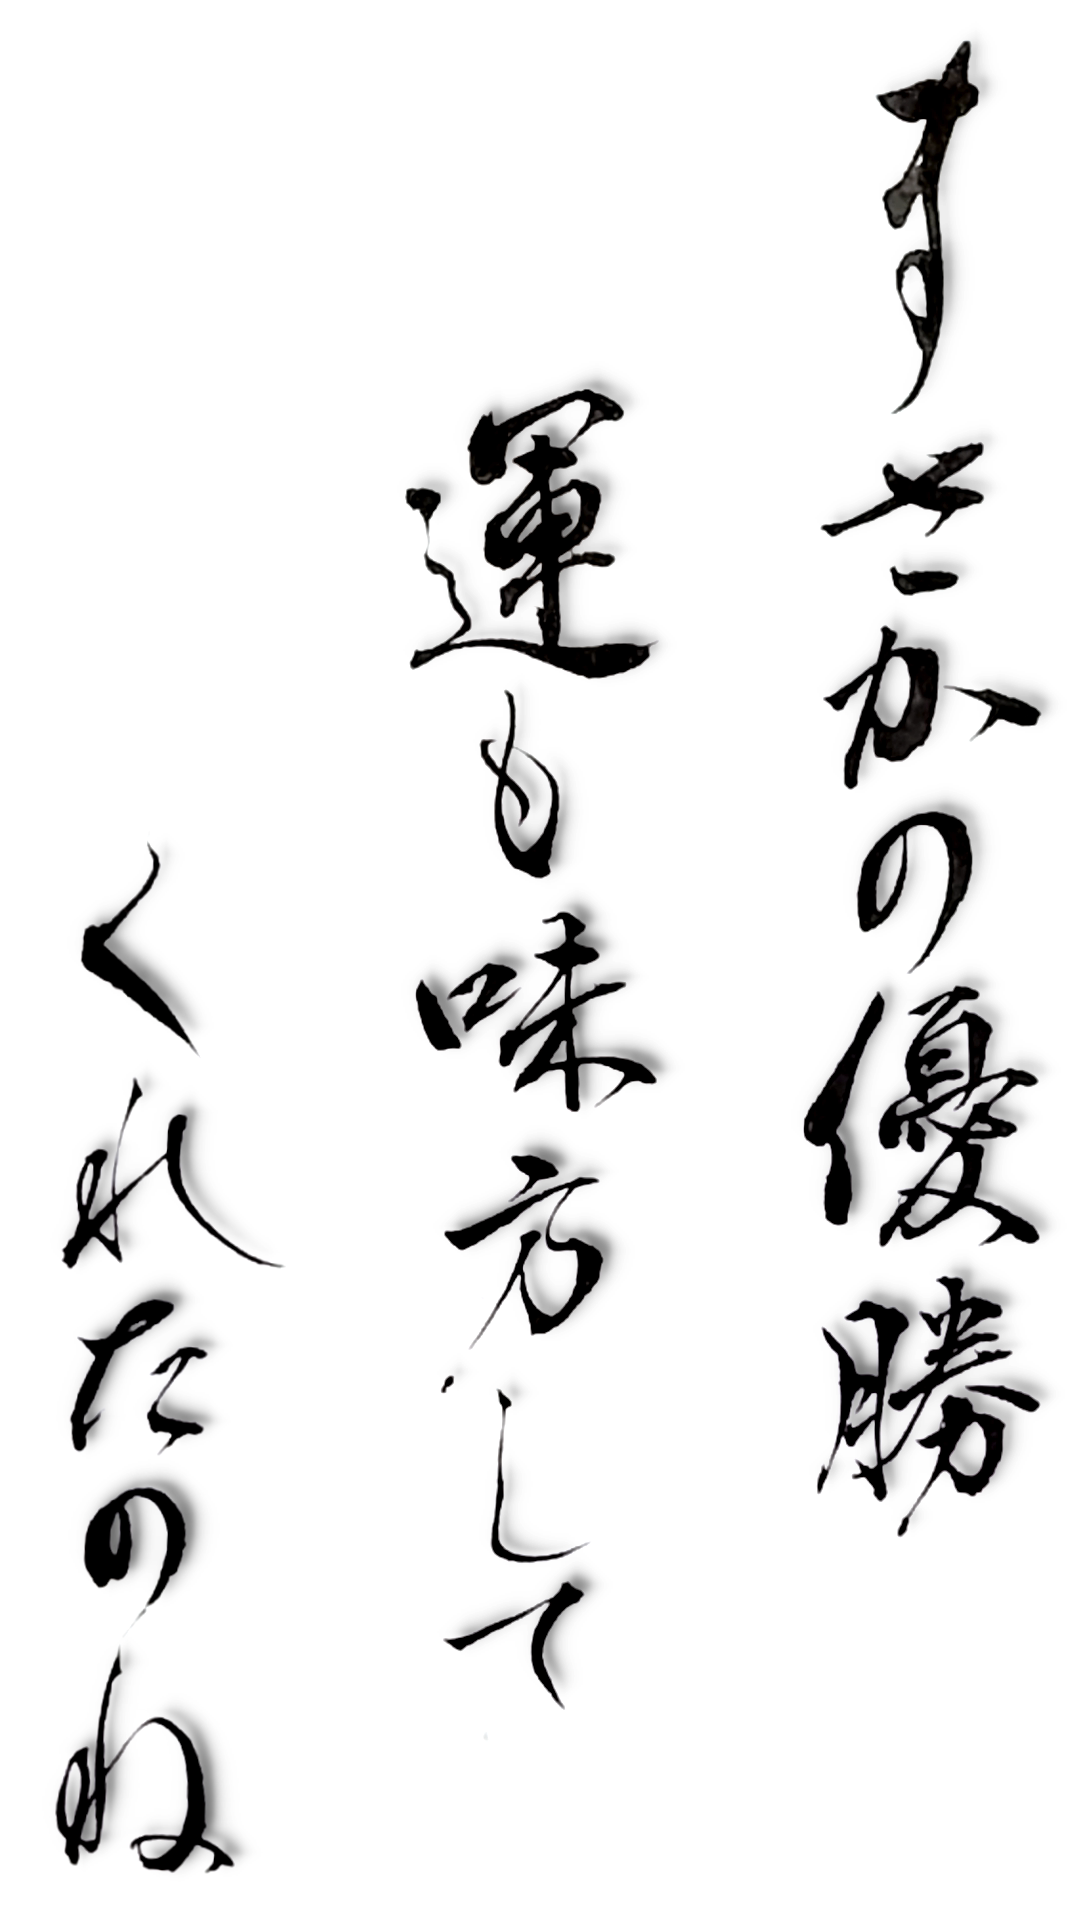 まさかの優勝
運も味方して
くれたのね